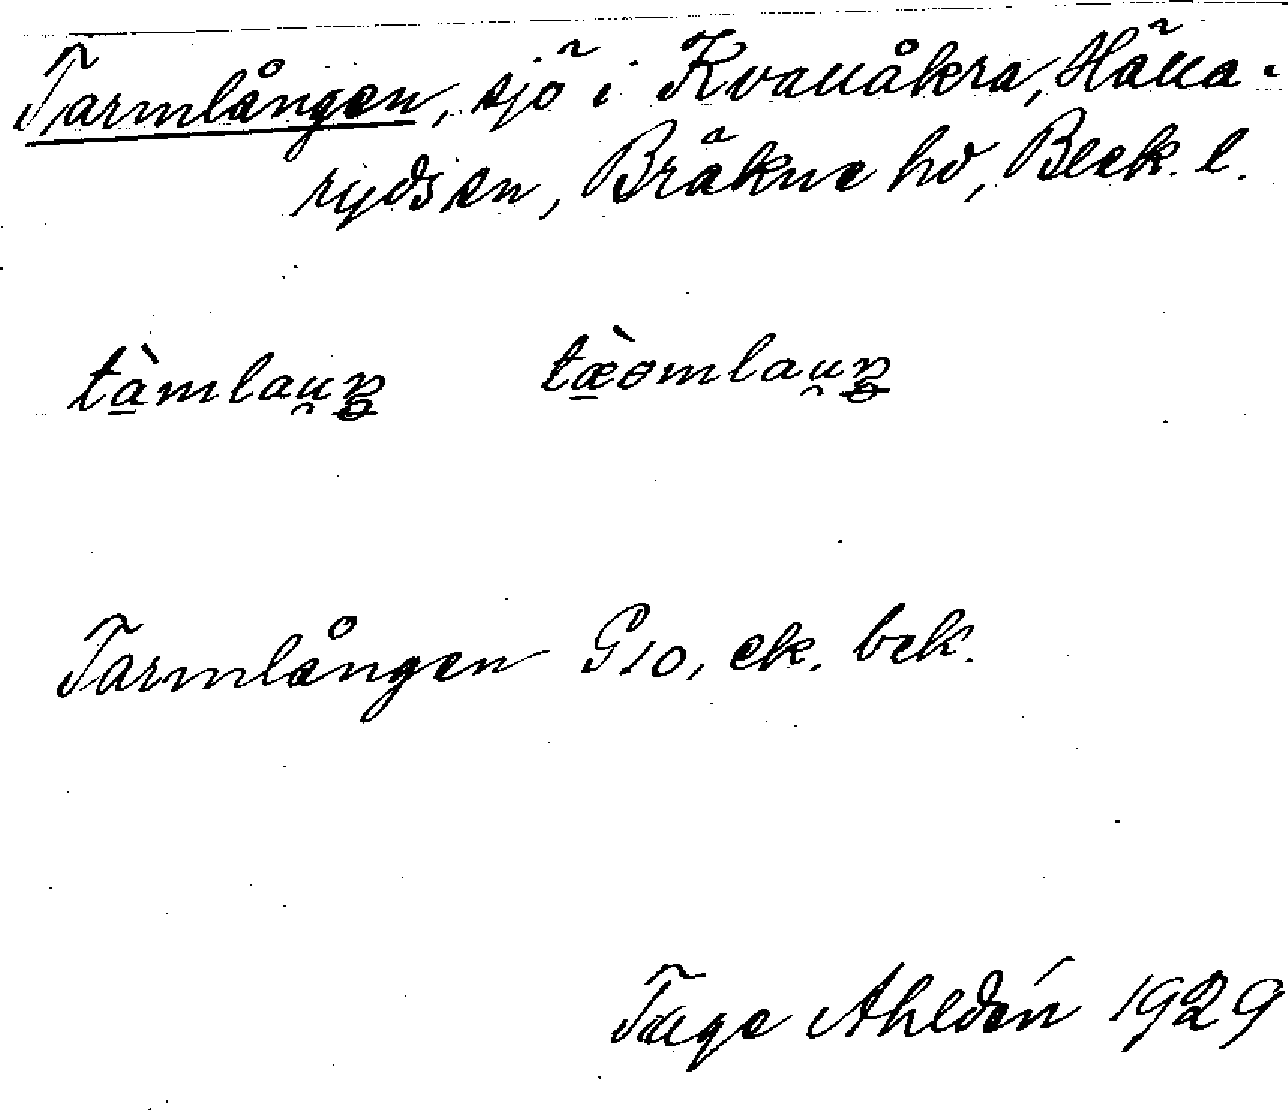 Tarmlången, sjö i Kvallåkra, Hälla-
rydssn, Bräkne hd, Blek. l.
tàmlauŋ tæ̀ɵmlauŋ
Tarmlången G10, ek. bek.
Tage Ahldén 1929